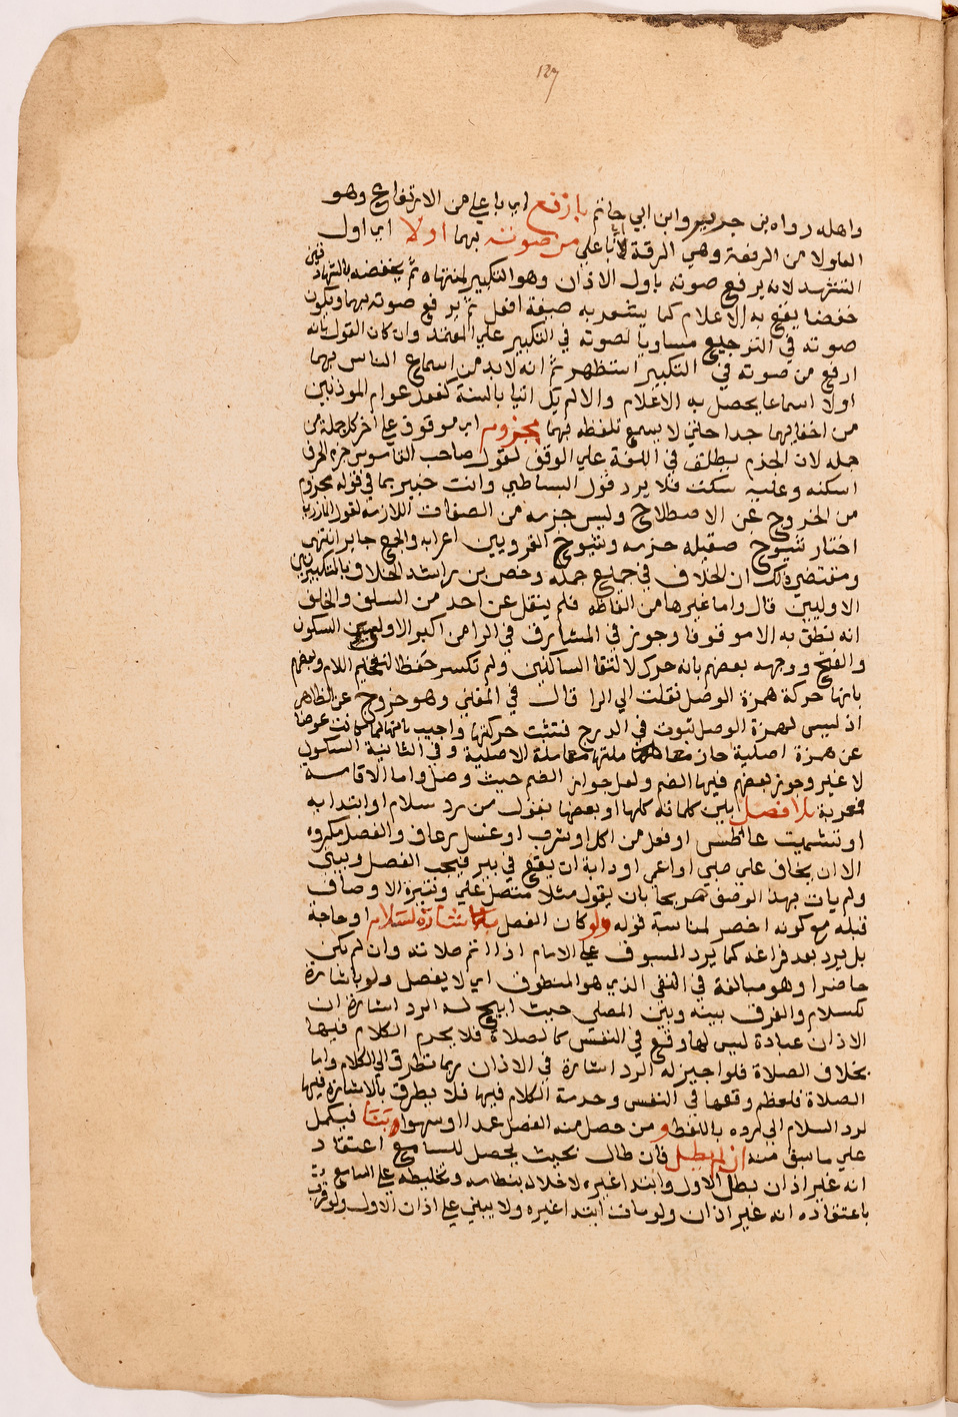 127
واهله رواه بن جرير وابن ابي حاتم بارفع اي باعلي من الارتفاع وهو
العلو لا من الرفعة وهي الرقة لانا باعلي من صوته بهما اولا اي اول
التشهد لانه يرفع صوته باول الاذان وهو التكبير لمنتهاه ثم يخفضه بالشهادتين
خفضا يقع به الاعلام كما يشعر به صيغة افعل ثم يرفع صوته بهما ويكون
صوته في الترجيع مساويا لصوته في التكبير علي المعتمد وان كان القول بانه
ارفع من صوته في التكبير استظهر ثم انه لابد من اسماع الناس بهما
اولا اسماعا يحصل به الاعلام والا لم يكن اتيا بالسنة كفعل عوام الموذنين
من اخفايهما جدا حتي لا يسمع تلفظه بهما مجزوم اي موقوف علي اخر كل جملة من
جمله لان الجزم يطلق في اللغة علي الوقف لقول صاحب القاموس جزم الحرف
اسكنه وعليه سكت فلا يرد قول البساطي وانت خبير بما في قوله مجزوم
من الخروج عن الاصطلاح وليس جزمه من الصفات اللازمة لقول المازري
اختار شيوخ صقيله جزمه وشيوخ القرويين اعرابه والجمع جايز انتهى
ومقتضى ذلك ان الخلاف في جميع جمله وخص بن راشد الخلاف بالتكبيرتين
الاوليين قال واما غيرها من الفاظه فلم ينقل عن احد من السلف والخلف
انه نطق به الا موقوفا وجوز في المشارق في الرا من اكبر الاولي السكون
والفتح ووجهه بعضهم بانه حرك لالتقا الساكنين ولم تكسر حفظا لتفخيم اللام وبعضهم
بانها حركة همزة الوصل نقلت الي الرا قال في المغني وهو خروج عن الظاهر
اذ ليس لهمزة الوصل ثبوت في الدرج فتثبت حركتها واجيب بانها لما كانت عوضا
عن همزة اصلية جاز معاملتها معاملة الاصلية وفي الثانية السكون
لا غير وجوز بعضهم فيها الضم ولعل جواز الضم حيث وصل واما الاقامة
فمعربة بلا فصل بين كلماته كلها او بعضها بقول من رد سلام او ابتدا به
او تشميت عاطس او فعل من اكل او شرب او غسل رعاف والفصل مكروه
الا ان يخاف علي صبي او اعمي او دابة ان يقع في بير فيجب الفصل ويبني
ولم يات بهذا الوصف صريحا بان يقول مثلا متصل علي وتيرة الاوصاف
قبله مع كونه اخصر لمناسبة قوله ولو كان الفصل باشارة لسلام او حاجة
بل يرد بعد فراغه كما يرد المسبوق علي الامام اذا اتم صلاته وان لم يكن
حاضرا وهو مبالغة في النفي الذي هو المنطوق اي لا يفصل ولو باشارة
كسلام والفرق بينه وبين المصلي حيث ابيح له الرد اشارة ان
الاذان عبادة ليس لها وقع في النفس كالصلاة فلا يحرم الكلام فيها
بخلاف الصلاة فلو اجيز له الرد اشارة في الاذان ربما تطرق الي الكلام واما
الصلاة فلعظم وقعها في النفس وحرمة الكلام فيها فلا يطرق بالاشارة فيها
لرد السلام الي رده باللفظ و من حصل منه الفصل عمدا او سهوا وبنا فيكمل
علي ما سبق منه ان لم يطل فان طال بحيث يحصل للسامع اعتقاد
انه غير اذان بطل الاول وابتدا غيره لاخلاله بنظامه وتخليطه علي السامع
باعتقاده انه غير اذان ولو مات ابتدا غيره ولا يبني علي اذان الاول ولو قرب